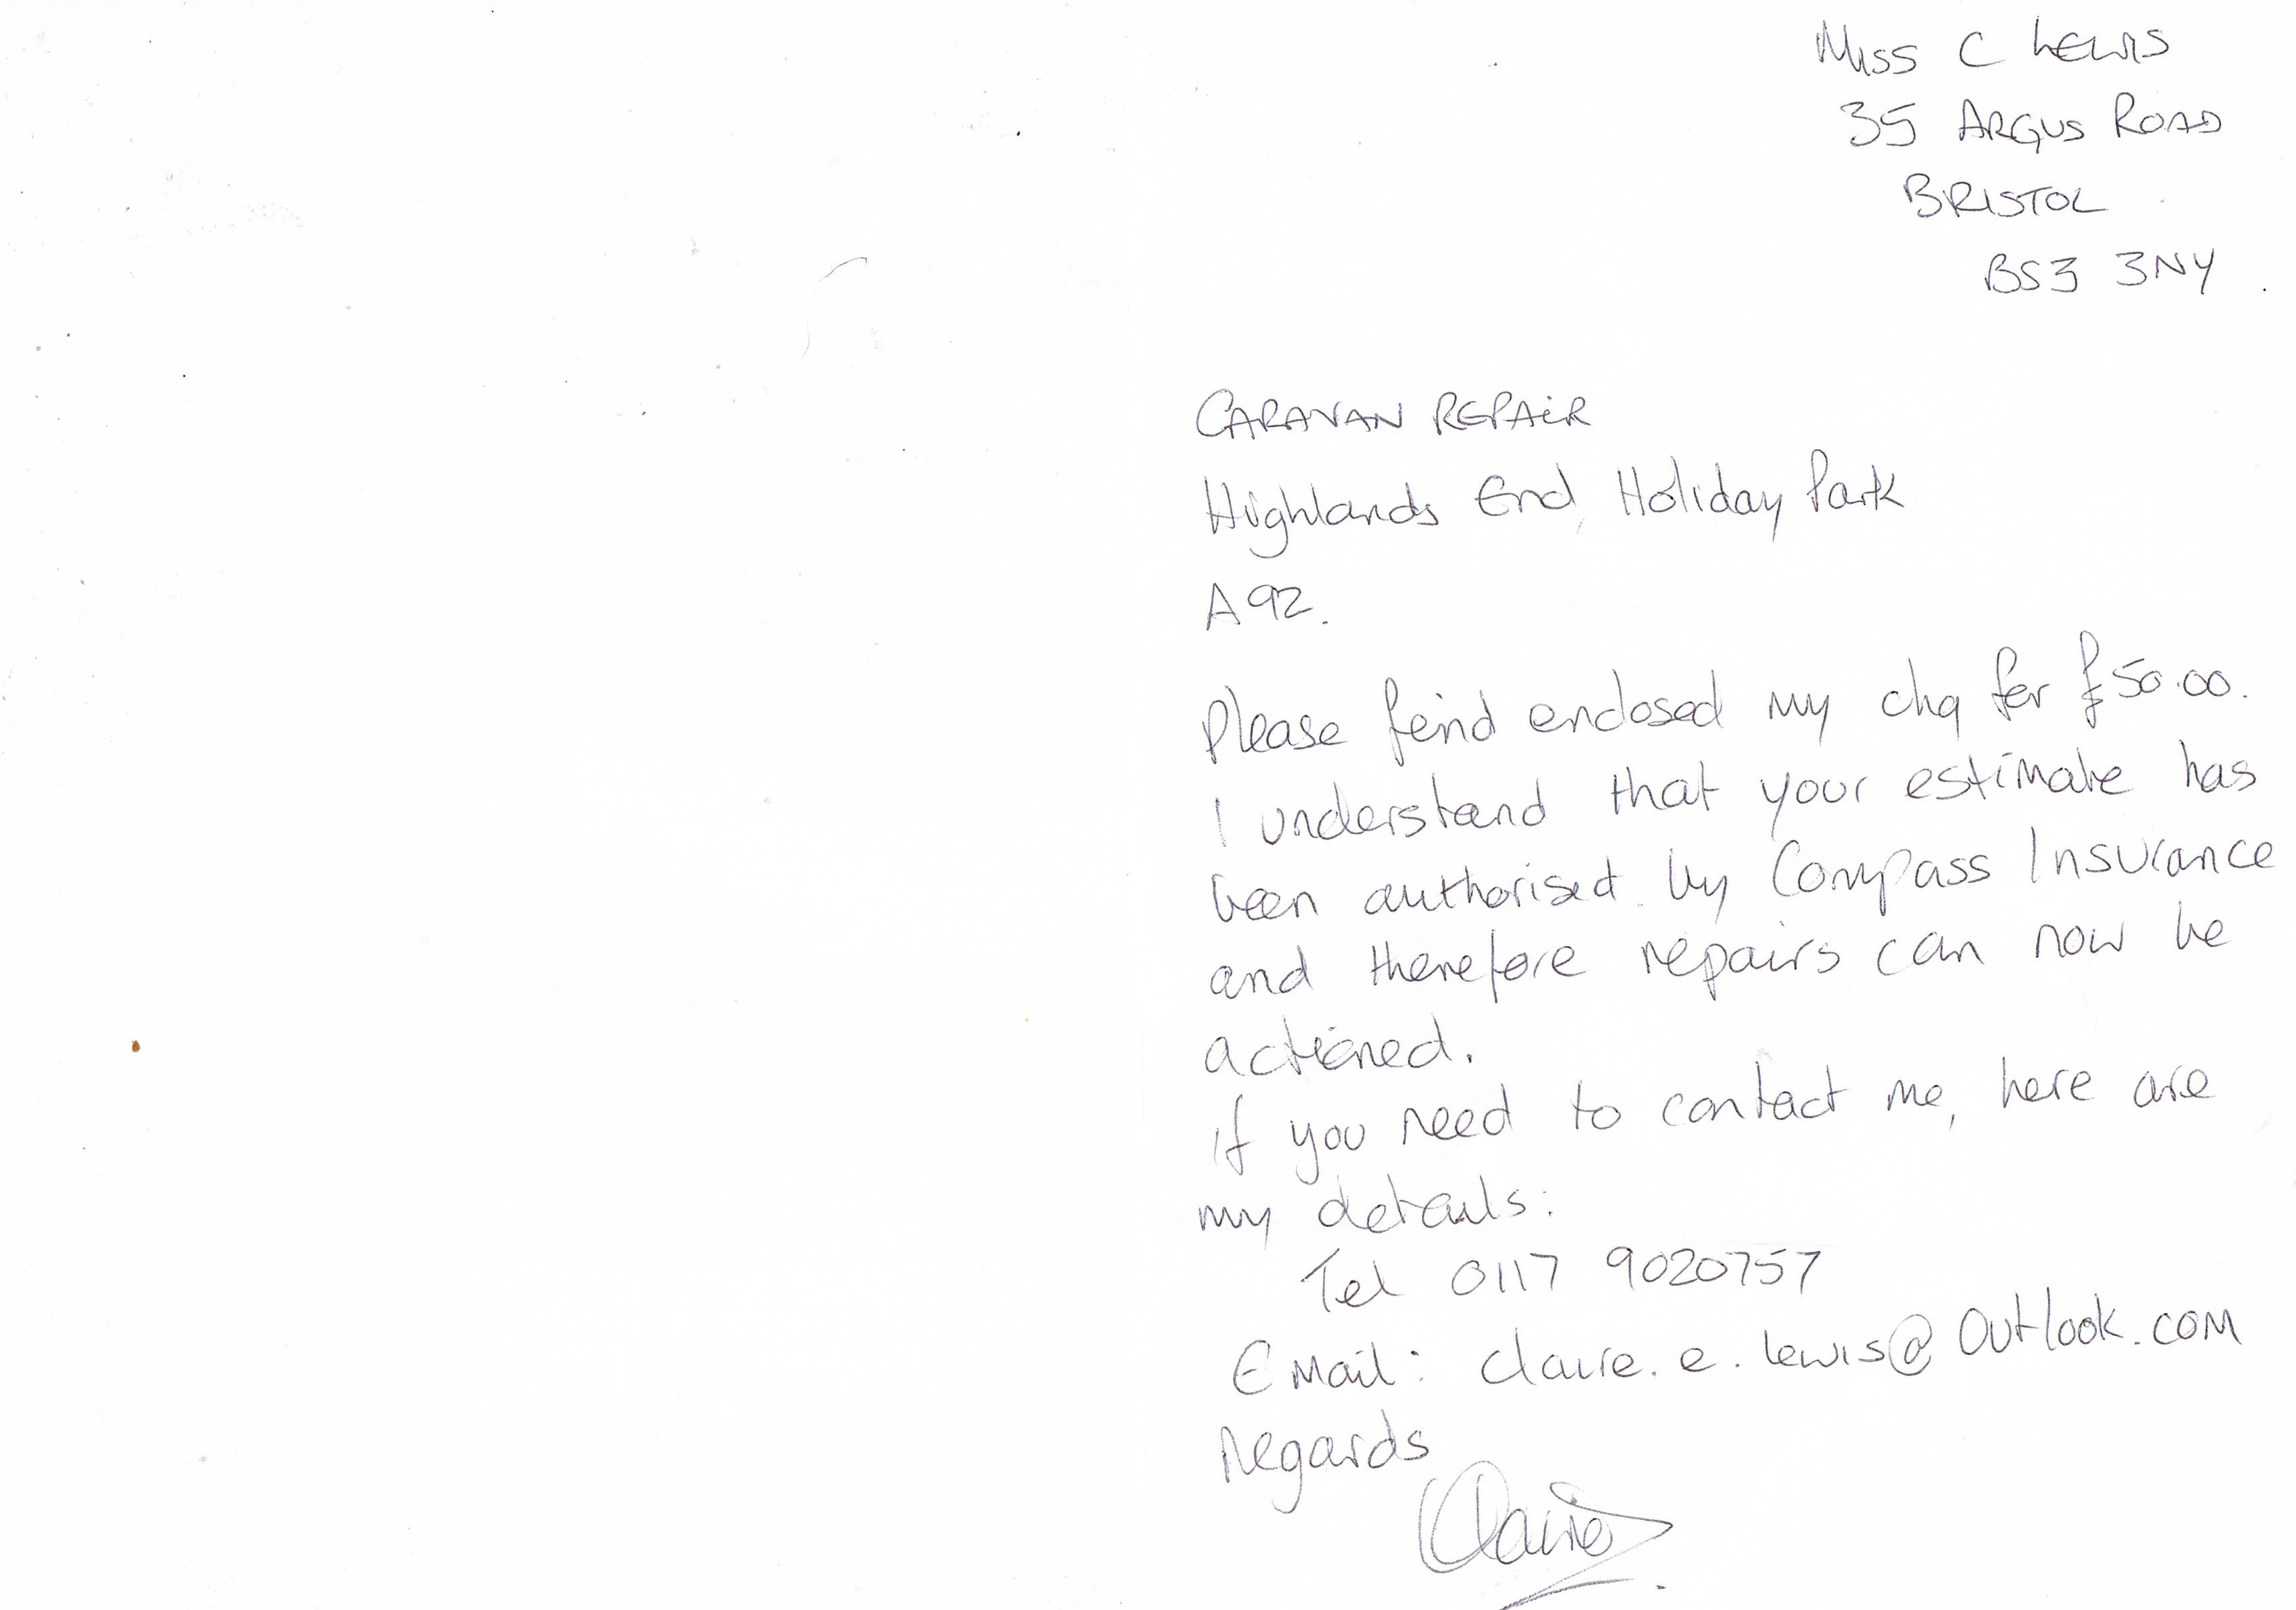 Miss C LEWIS
35 ARGUS ROAD
BRISTOL
BS3 3NY
CARAVAN REPAiR
Highlands End, Holiday Park
A92.
Please feind enclosed my chq for £50.00.
I understand that your estimate has
been authorised by Compass Insurance
and therefore repairs can now be
actioned.
If you need to contact me, here are
my details:
Tel 0117 9020757
EMail: claire.e.lewis@Outlook.com
Regards
Claire